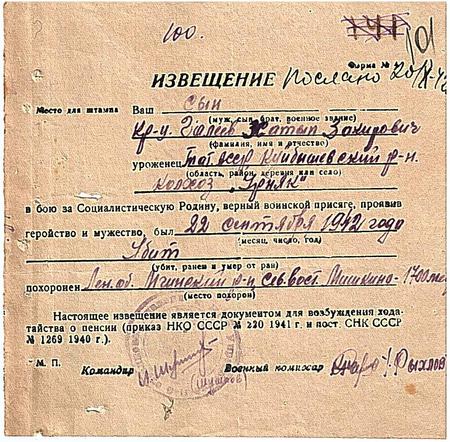 100.
141
101
Форма №
ИЗВЕЩЕНИЕ Послано 20/X-42
Место для штампа Ваш сын
(муж, сын, брат, военное звание)
Кр-ц Галеев Хатып Закирович
(фамилия, имя и отчество)
уроженец Татасср Куйбышевский р-н.
(область, район, деревня или село)
колхоз "Урняк"
в бою за Социалистическую Родину, верный воинской присяге, проявив
геройство и мужество, был 22 сентября 1942 года
(месяц, число, год)
Убит
(убит, ранен и умер от ран)
похоронен Лен. об. Мгинский р-н Сев. вост. Мишкино - 1700 метр
(место похорон)
Настоящее извещение является документом для возбуждения хода-
тайства о пенсии (приказ НКО СССР № 220 1941 г. и пост. СНК СССР
№ 1269 1940 г.).
М. П.
Командир Военный комиссар